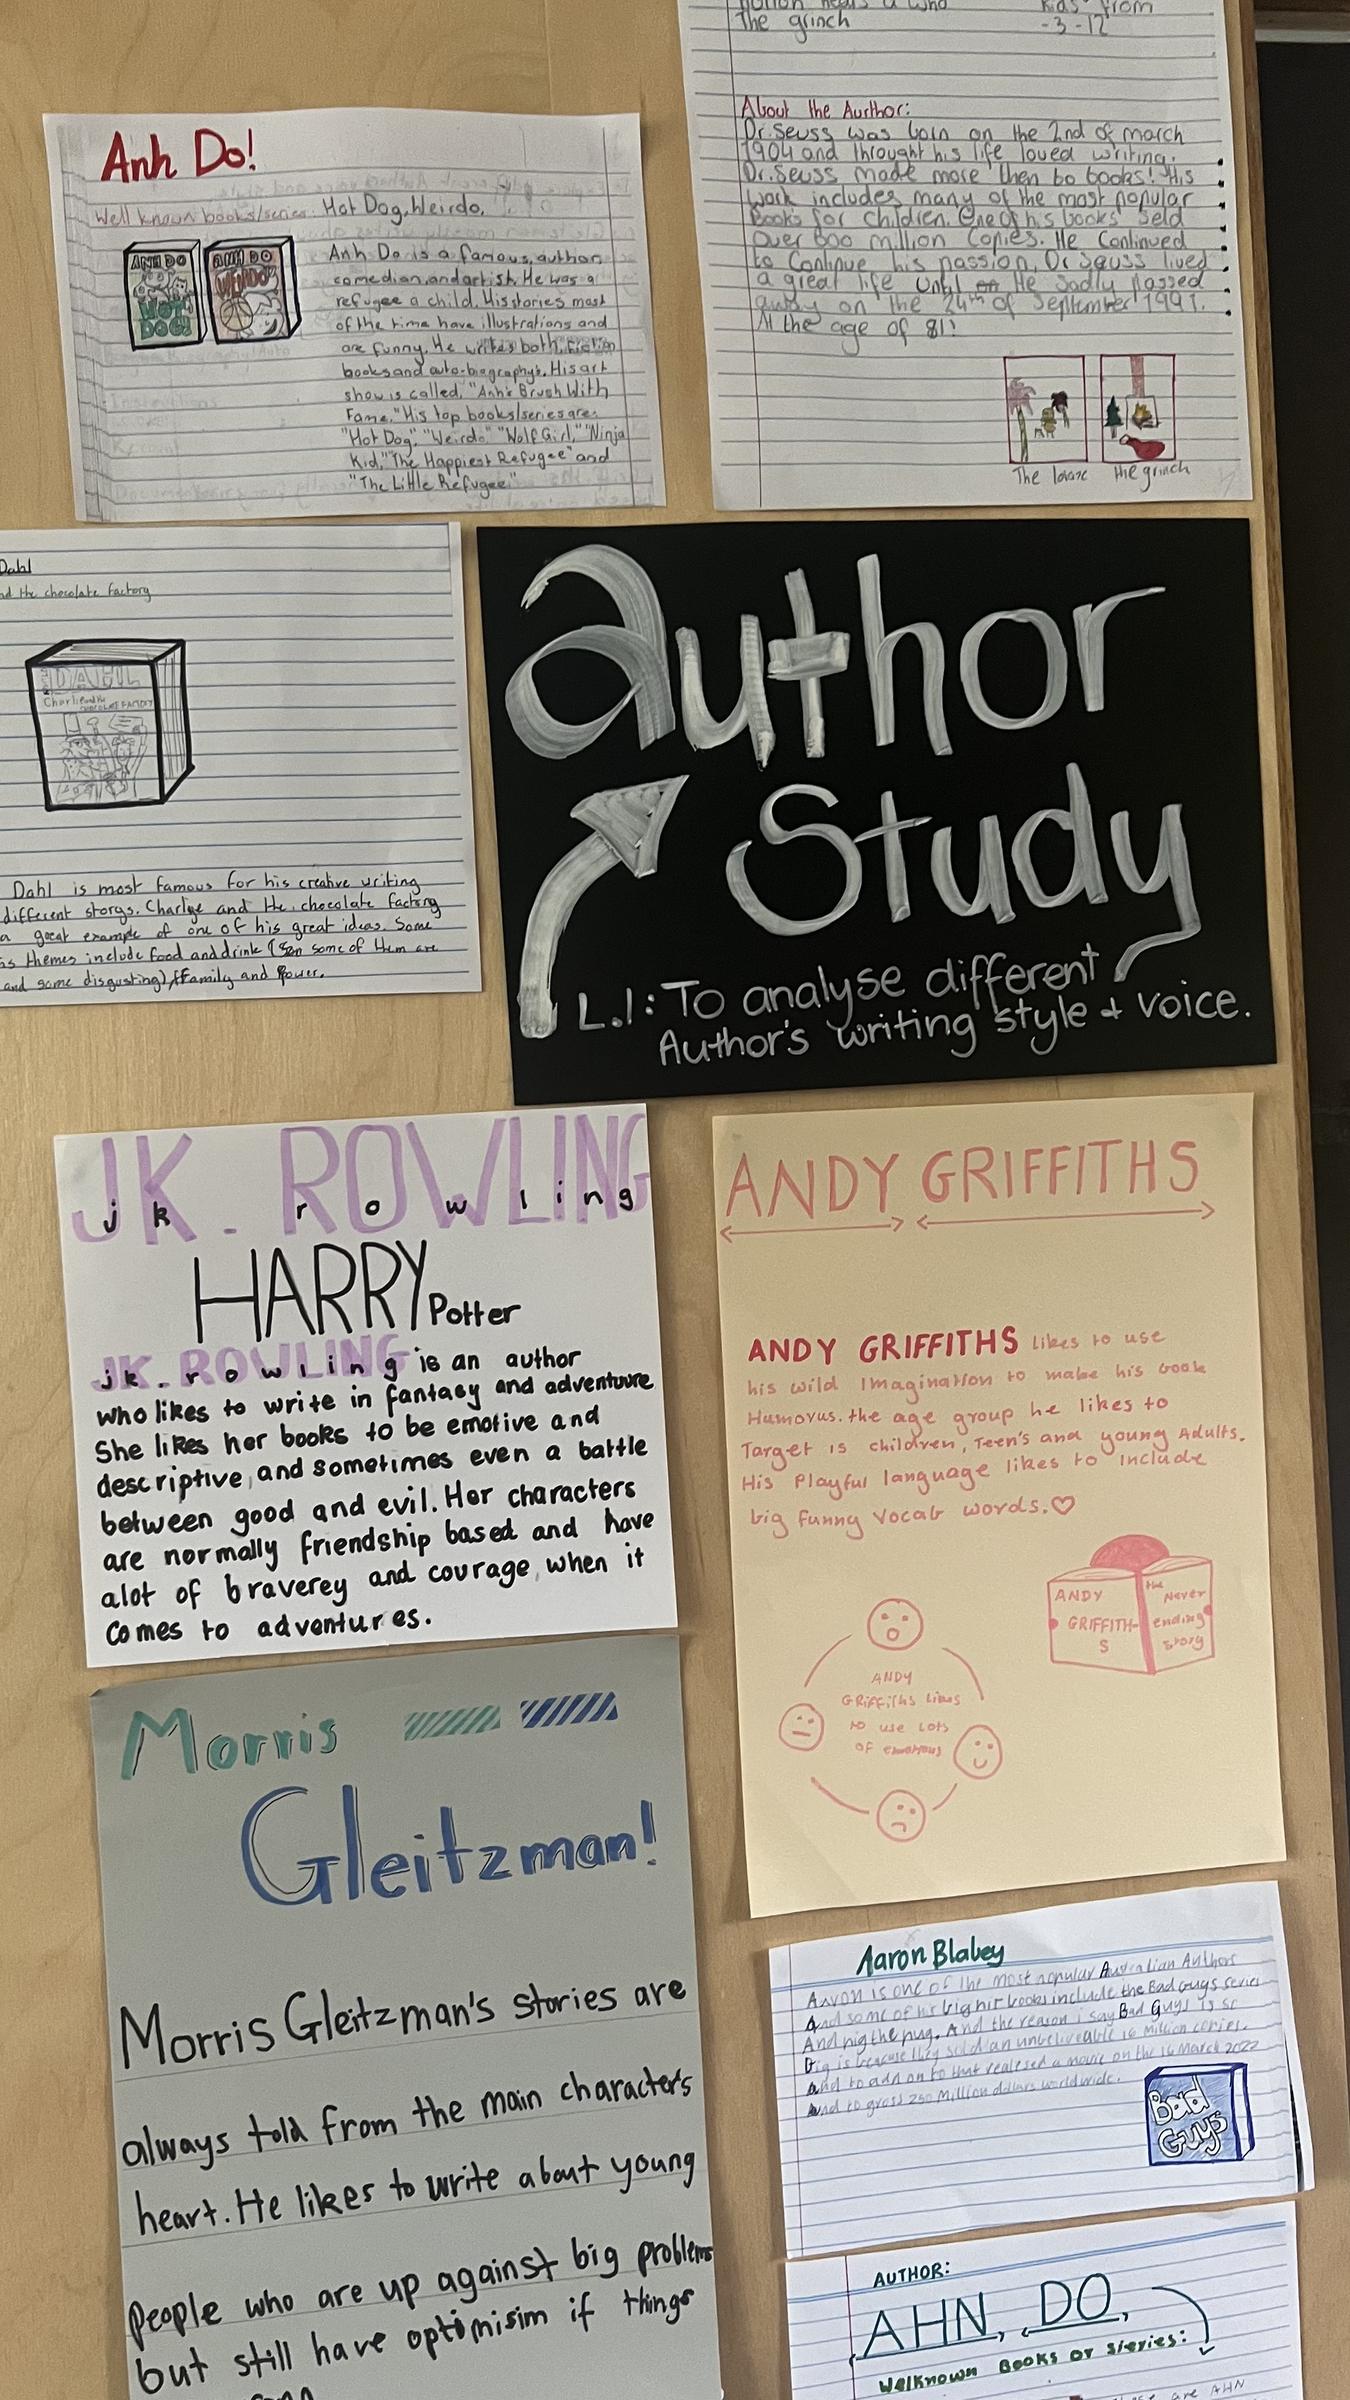 Anh Do!
Well known books/series: Hot Dog, Weirdo,
ANH DO
HOT
DOG!
ANH DO
WEIRDO
Anh Do is a famous, author,
comedian, and artist. He was a
refugee a child. His stories most
of the time have illustrations and
are funny. He writes both, fiction
books and auto-biography's. His art
show is called, "Anh's Brush With
Fame." His top books/series are:
"Hot Dog", "Weirdo," "Wolf Girl," "Ninja
Kid," "The Happiest Refugee" and
"The Little Refugee"
hears a who
The grinch
kids from
-3-12
About the Aurthor:
Dr. Seuss was born on the 2nd of march
1904 and throught his life loved writing.
Dr. Seuss made more then 60 books! His
work includes many of the most popular
Books for children. One of his books sold
over 600 million copies. He continued
to Continue his passion. Dr Seuss lived
a great life until He Sadly passed
away on the 24th of September 1991.
At the age of 81!
The lorax
the grinch
Dahl
nd the chocolate factory
DAHL
Charlie and the
CHOCOLATE FACTORY
Dahl is most famous for his creative writing
different storys. Charlye and the chocolate factory
a great example of one of his great ideas. Some
is themes include food and drink ( some of them are
and some disgusting), Family and Power.
author
Study
L.I: To analyse different
Author's writing style + voice.
JK. ROWLING
jk rowling
HARRY Potter
JK. ROWLING
jk. rowling is an author
who likes to write in fantasy and adventuure
She likes her books to be emotive and
descriptive, and sometimes even a battle
between good and evil. Her characters
are normally friendship based and have
alot of braverey and courage, when it
comes to adventures.
ANDY GRIFFITHS
ANDY GRIFFITHS likes to use
his wild Imagination to make his book
Humorus. the age group he likes to
Target is children, Teen's and young Adults.
His Playful language likes to include
big funny Vocab words.♡
ANDY
GRIFFITH-
S
the
Never
ending
story
ANDY
GRiffiths likes
to use lots
of emotions
Morris
Gleitzman!
Morris Gleitzman's stories are
always told from the main characters
heart. He likes to write about young
People who are up against big problems
but still have optimisim if things
Aaron Blabey
Aaron is one of the most popular Australian Authors
And some of his big hit books include the Bad Guys series
And pig the pug. And the reason i say Bad Guys is so
Big is because they sold an unbeliveable 16 Million copies.
And to add on to that realesed a movie on the 16 March 2022
And to gross 250 Million dollars worldwide.
Bad
Guys
AUTHOR:
AHN, DO,
Welknown Books or s/eries:
are AHN